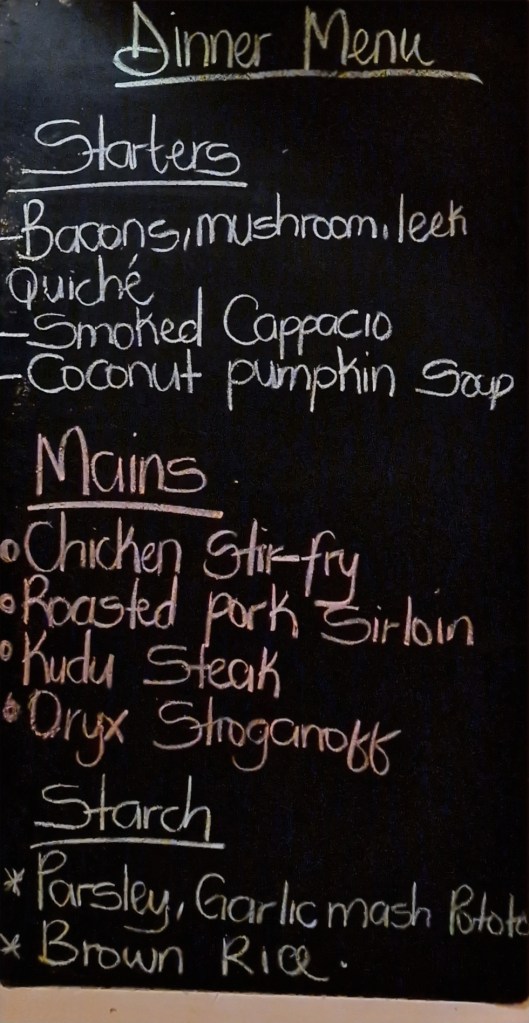 Dinner Menu
Starters
-Bacons, mushroom, leek
Quiché
-Smoked Cappacio
-Coconut pumpkin Soup
Mains
•Chicken Stir-fry
•Roasted pork Sirloin
•Kudu Steak
•Oryx Stroganoff
Starch
* Parsley, Garlic mash Potato
* Brown Rice.